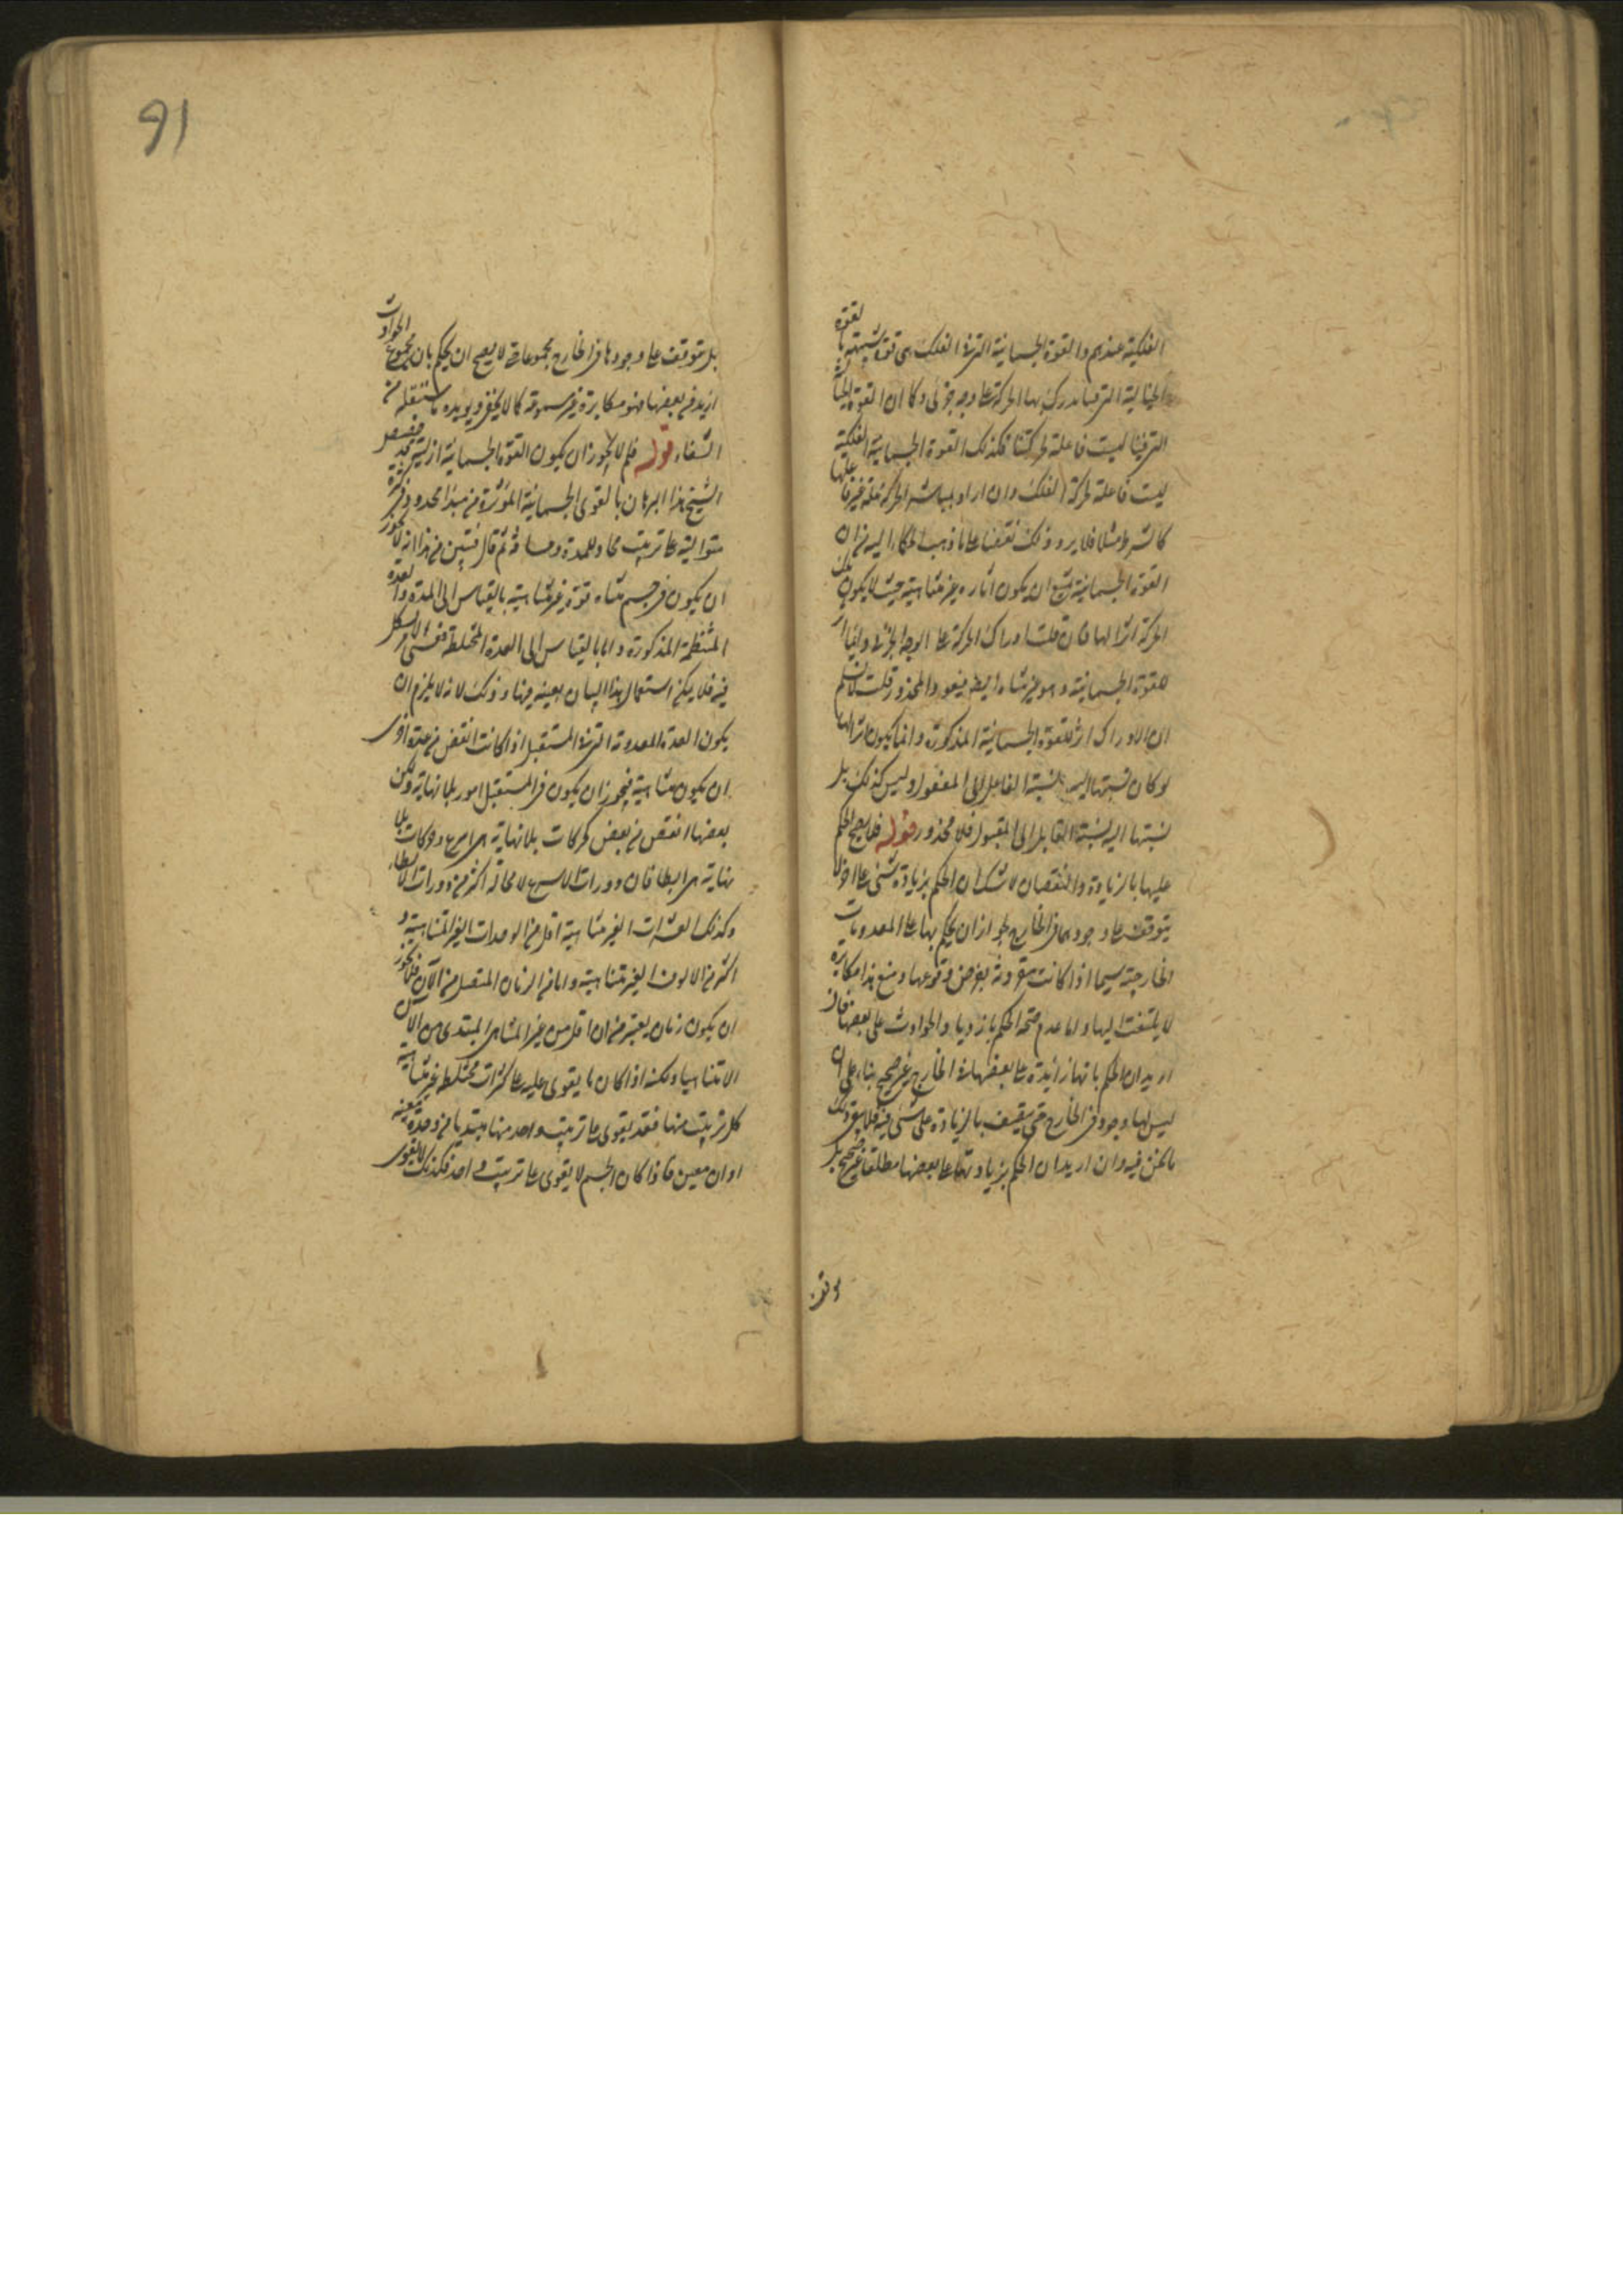 الفلكية عندهم والقوة الجسمانية التى فى الفلك هى قوة شبيهة بالقوة
الخيالية التى فينا تدرك بها الحركة على وجه جزئى وكما ان القوة الخيالية
التى فينا ليست فاعلة لحركتنا فكذلك القوة الجسمانية الفلكية
ليست فاعلة لحركة الفلك وان اراد بمباشر الحركة علة غير فاعلها
كالشرط مثلا فلا يرد ذلك نقضا على ما ذهب الحكماء اليه من ان
القوة الجسمانية يمتنع ان يكون اثاره غير متناهية حيث لا يكون تلك
الحركة اثرا لها فان قلت ادراك الحركة على الوجه الجزئى
للقوة الجسمانية وهو غير متناه ايضا فيعود المحذور قلت لا نسلم
ان الادراك اثر للقوة الجسمانية المذكورة وانما يكون اثرا لها
لو كان نسبتها اليه نسبة الفاعل الى المفعول وليس كذلك بل
نسبتها اليه نسبة القابل الى المقبول فلا محذور قوله فلا يصح الحكم
عليها بالزيادة والنقصان لا شك ان الحكم بزيادة شئ على اخر لا
يتوقف على وجودهما فى الخارج لجواز ان يحكم بها على المعدومات
الخارجية سيما اذا كانت مقرونة بفرض وقوعها ومنع هذا مكابرة
لا يلتفت اليها واما عدم صحة الحكم بازدياد الحوادث على بعضها فان
اريد ان الحكم بانها زائدة على بعضها فى الخارج غير صحيح بناء على ان
ليس لها وجود فى الخارج حتى يتصف بالزيادة على شئ فيه فلا
ما نحن فيه وان اريد ان الحكم بزيادتها على بعضها مطلقا غير صحيح بل
بل يتوقف على وجودها فى الخارج مجموعا حتى لا يصح ان يحكم بان مجموع الحوادث
ازيد من بعضها فهو مكابرة غير مسموعة كما لا يخفى ويؤيده ما سننقله من
الشفاء قوله فلم لا يجوز ان يكون القوة الجسمانية ازلية
الشيخ هذا البرهان بالقوى الجسمانية المؤثرة من مبدأ محدود
متوالية على ترتيب محاذ للمدة ثم قال فتبين من هذا انه لا يجوز
ان يكون فى جسم متناه قوة غير متناهية بالقياس الى المدة والعدة
المنتظمة المذكورة واما بالقياس الى العدة المختلطة
فيه فلا يمكن استعمال هذا البيان بعينه فيها وذلك لانه لا يلزم ان
يكون العدة المعدومة التى فى المستقبل اذا كانت انقص من عدة اخرى
ان يكون متناهية فيجوز ان يكون فى المستقبل امور بلا نهاية ويكون
بعضها انقص من بعض كحركات بلا نهاية هى اسرع وحركات بلا
نهاية هى ابطأ فان دورات الاسرع لا محالة اكثر من دورات الابطاء
وكذلك العشرات الغير متناهية اقل من الوحدات الغير المتناهية و
اكثر من الالوف الغير متناهية واما من الزمان المتصل من الآن فلا يجوز
ان يكون زمان يعتبر من ان اقل من غير المتناهى المبتدى من الان
الا متناهيا ولكنه اذا كان ما يقوى عليه على كثرات مختلطة غير متناهية
كل ترتيب منها فقد يقوى على ترتيب واحد منها يبتديا من وحدة معينة
او ان معين فاذا كان الجسم لا يقوى على ترتيب واحد فكذلك لا يقوى
91